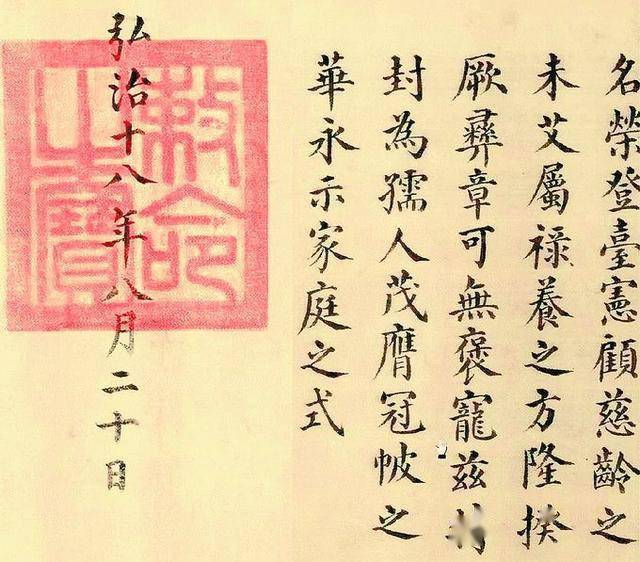 名榮登臺憲顧慈齡之
未艾屬祿養之方隆揆
厥彞章可無褒寵兹特
封為孺人茂膺冠帔之
華永示家庭之式
弘治十八年八月二十日
敕命之寶